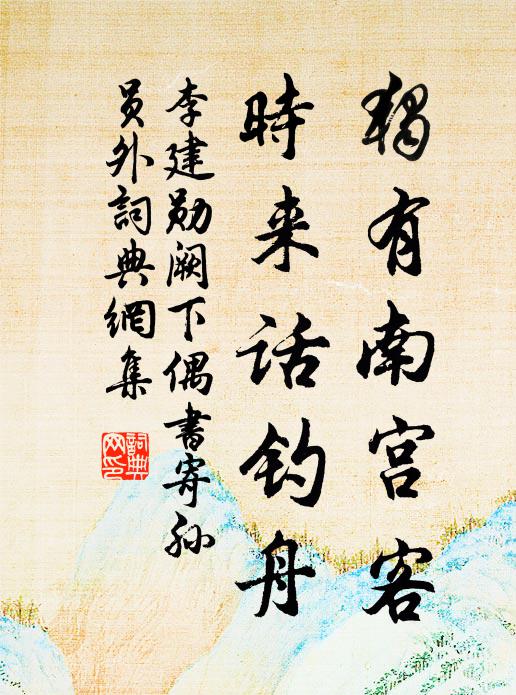 独有南宫客
時来话钓舟
李建勋阙下偶書寄孙
员外詞典網集
詞典网印